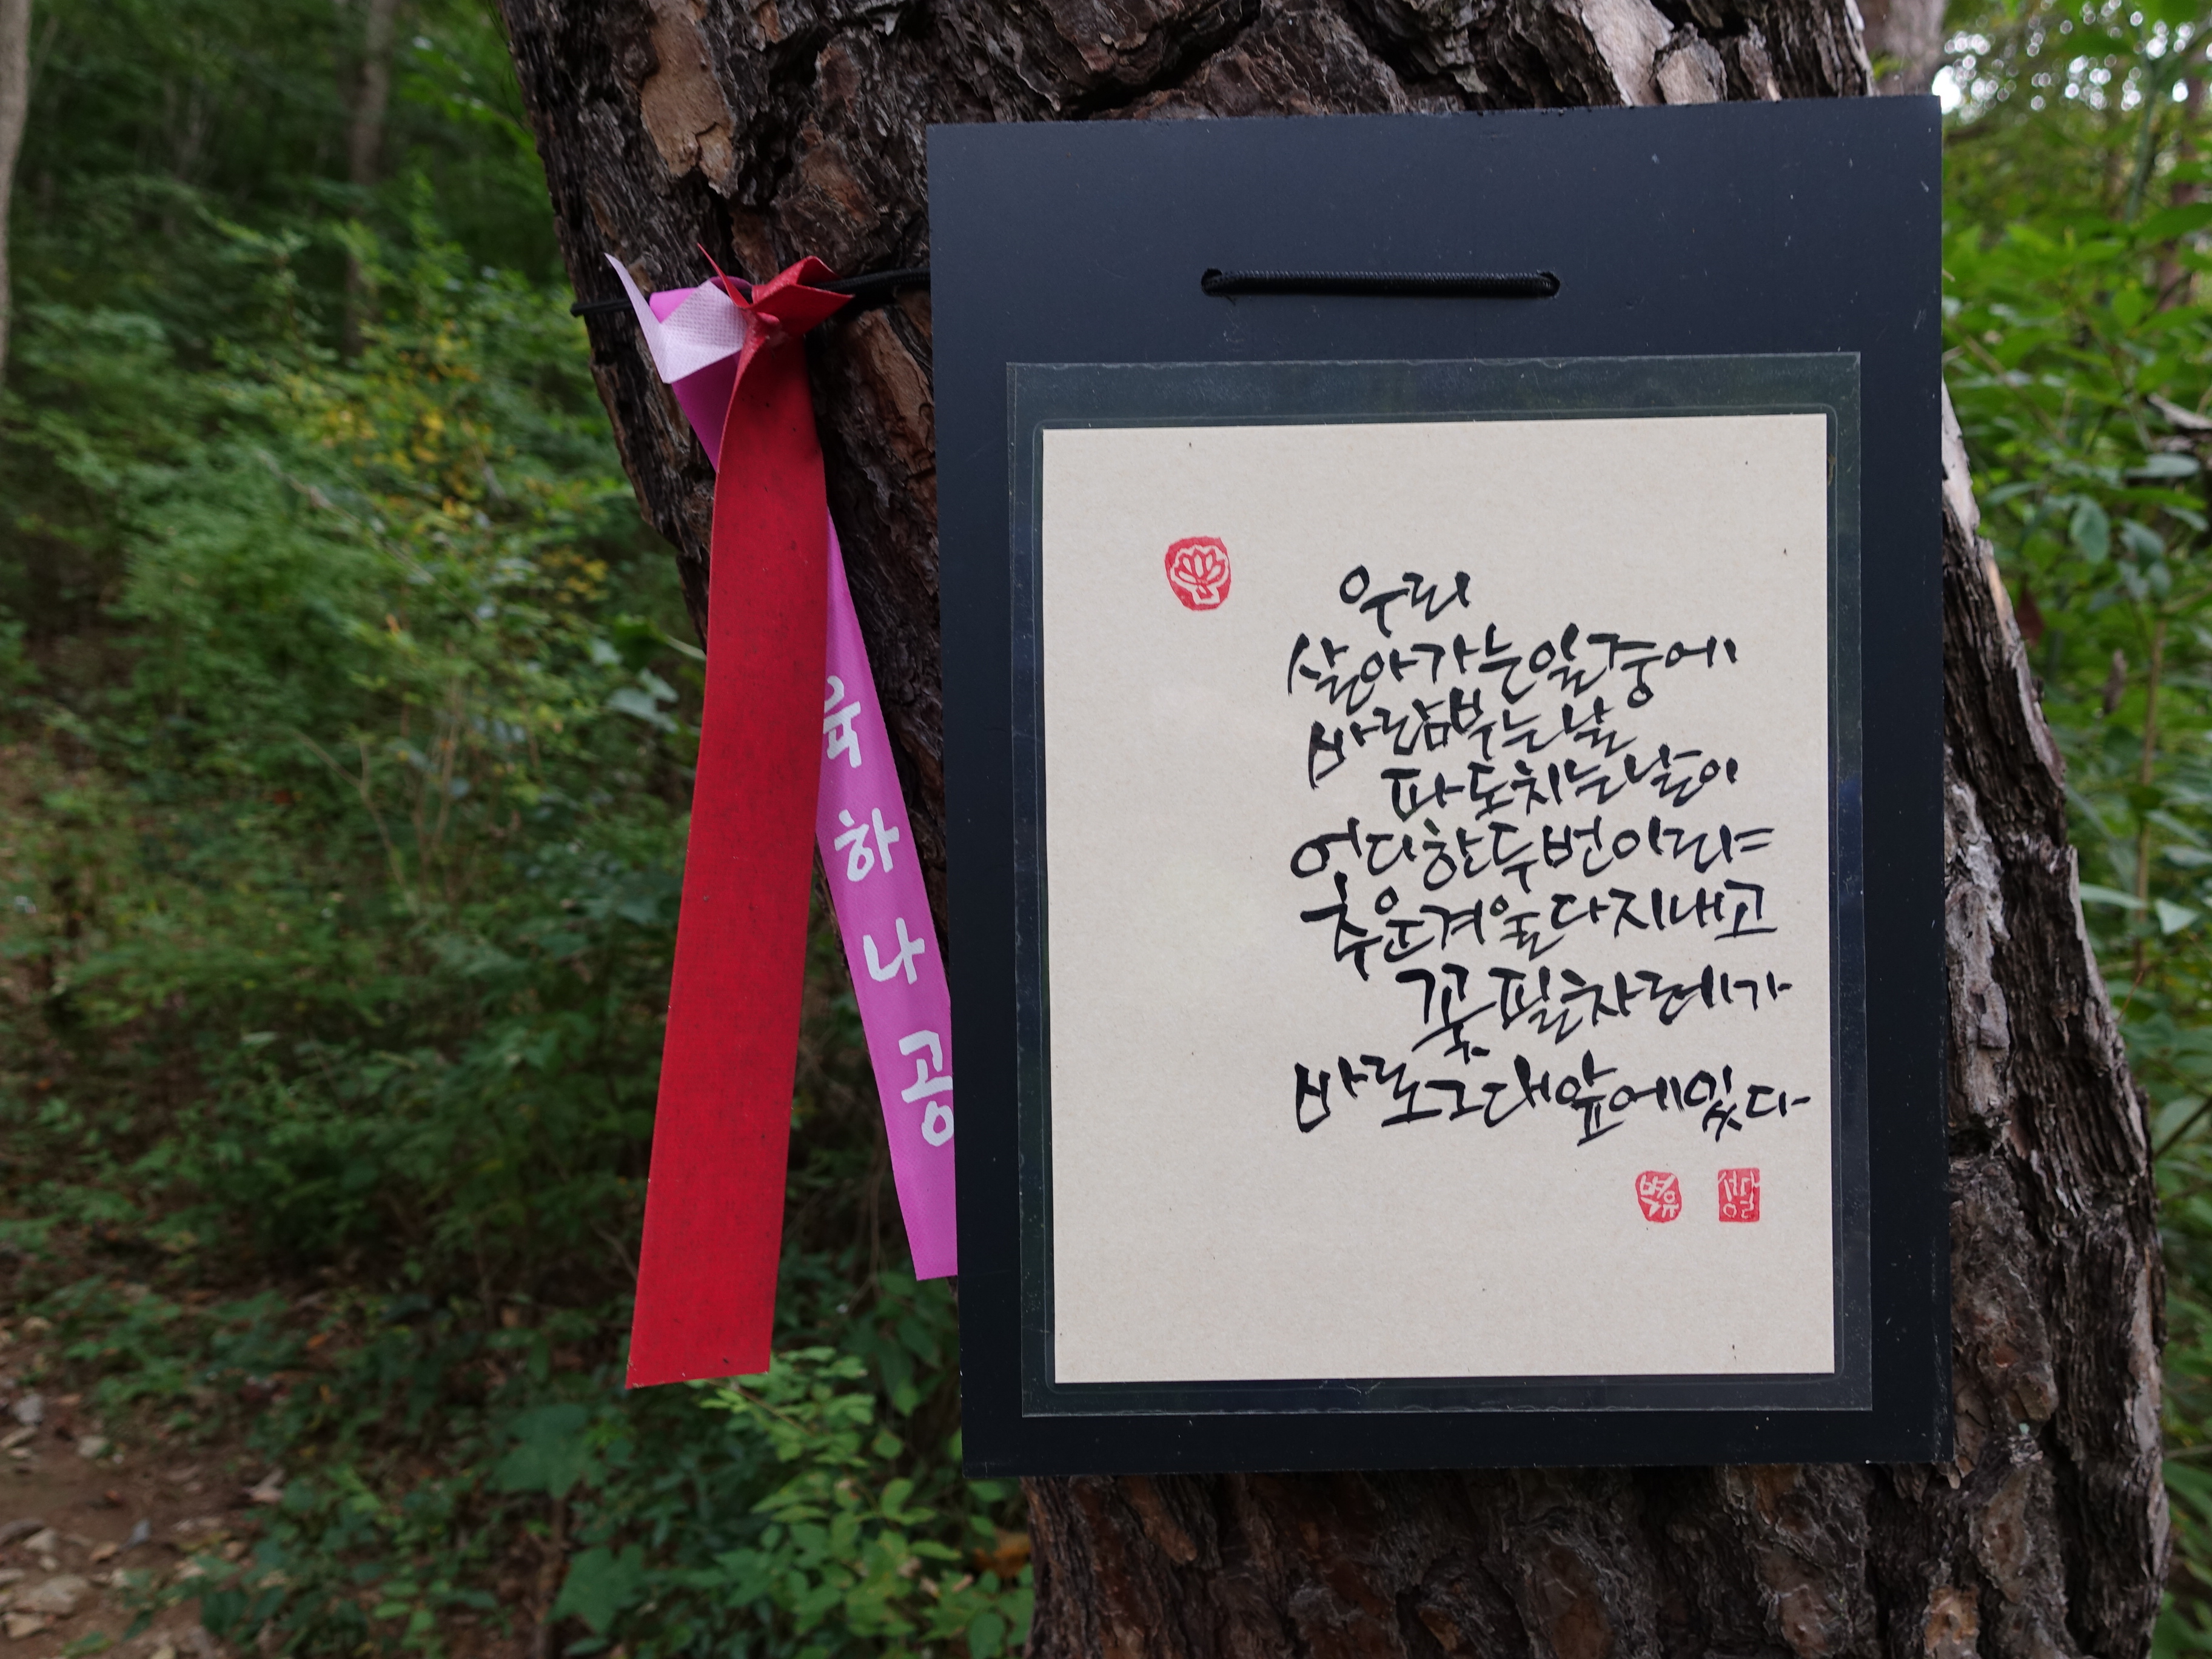 육
하
나
공
우리
살아가는일중에
바람부는날
파도치는날이
어디한두번이랴
추운겨울다지내고
꽃필차례가
바로그대앞에있다